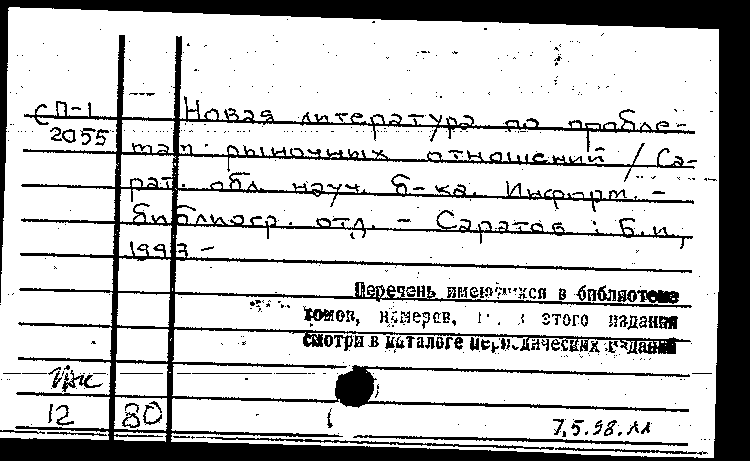 СП-1 Новая литература по пробле-
2055 мам рыночных отношений / Са-
рат. обл. науч. б-ка. Информ.-
библиогр. отд. - Саратов : Б.и.,
1993 -
Перечень имеющихся в библиотеке
томов, номеров, этого издания
смотри в каталоге периодических изданий
12 80
7.5.98.